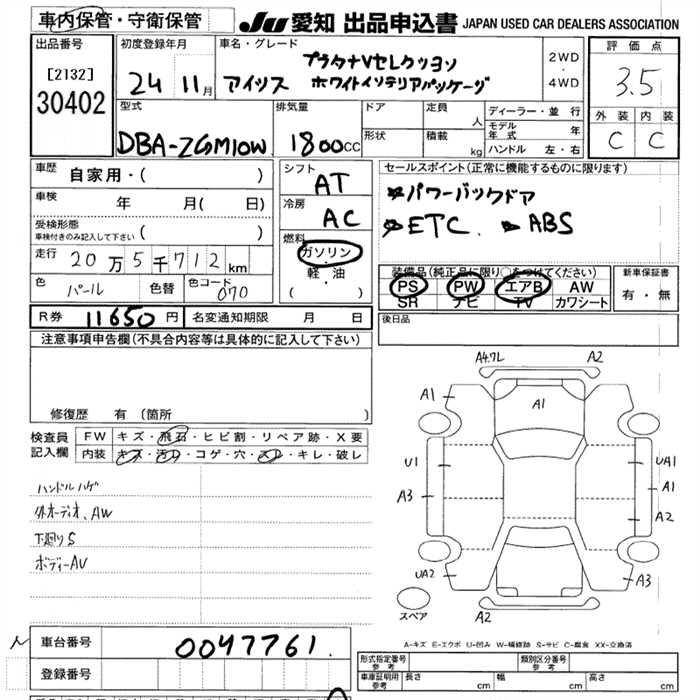 車内保管・守衛保管 JU 愛知 出品申込書 JAPAN USED CAR DEALERS ASSOCIATION
出品番号
[2132]
30402
初度登録年月
24 11月
車名・グレード
アイシス
プラタナVセレクション
ホワイトインテリアパッケージ
2WD
・
4WD
評価点
3.5
外装 内装
C C
型式
DBA-ZGM10W
排気量
1800cc
ドア
形状
定員 人
積載 kg
ディーラー・並行
モデル年式 年
ハンドル 左・右
車歴
自家用・( )
車検 年 月( 日)
受検形態
車検付きのみ記入して下さい ( )
走行 20万5千712km
色 パール 色替 色コード 070
シフト
AT
冷房
AC
燃料
ガソリン
・
軽・油
( )
セールスポイント(正常に機能するものに限ります)
パワーバックドア
ETC. ABS
装備品(純正品に限り○をつけてください)
PS PW エアB AW
SR ナビ TV カワシート
新車保証書
有・無
R券 11650円 名変通知期限 月 日
後日品
注意事項申告欄(不具合内容等は具体的に記入して下さい)
修復歴 有(箇所 )
検査員
記入欄
FW キズ・飛石・ヒビ割・リペア跡・X要
内装 キズ・汚れ・コゲ・穴・スレ・キレ・破レ
ハンドルハゲ
外オーディオ、AW
下廻りS
ボディーAU
A4.7L A2
A1 A1
U1 UA1
A1
A3 A2
UA2 A3
A2
スペア
A-キズ E-エクボ U-凹み W-補修跡 S-サビ C-腐食 XX-交換済
車台番号 0047761.
登録番号
形式指定番号
参考
類別区分番号
参考
車庫証明用
参考
長さ cm 幅 cm 高さ cm